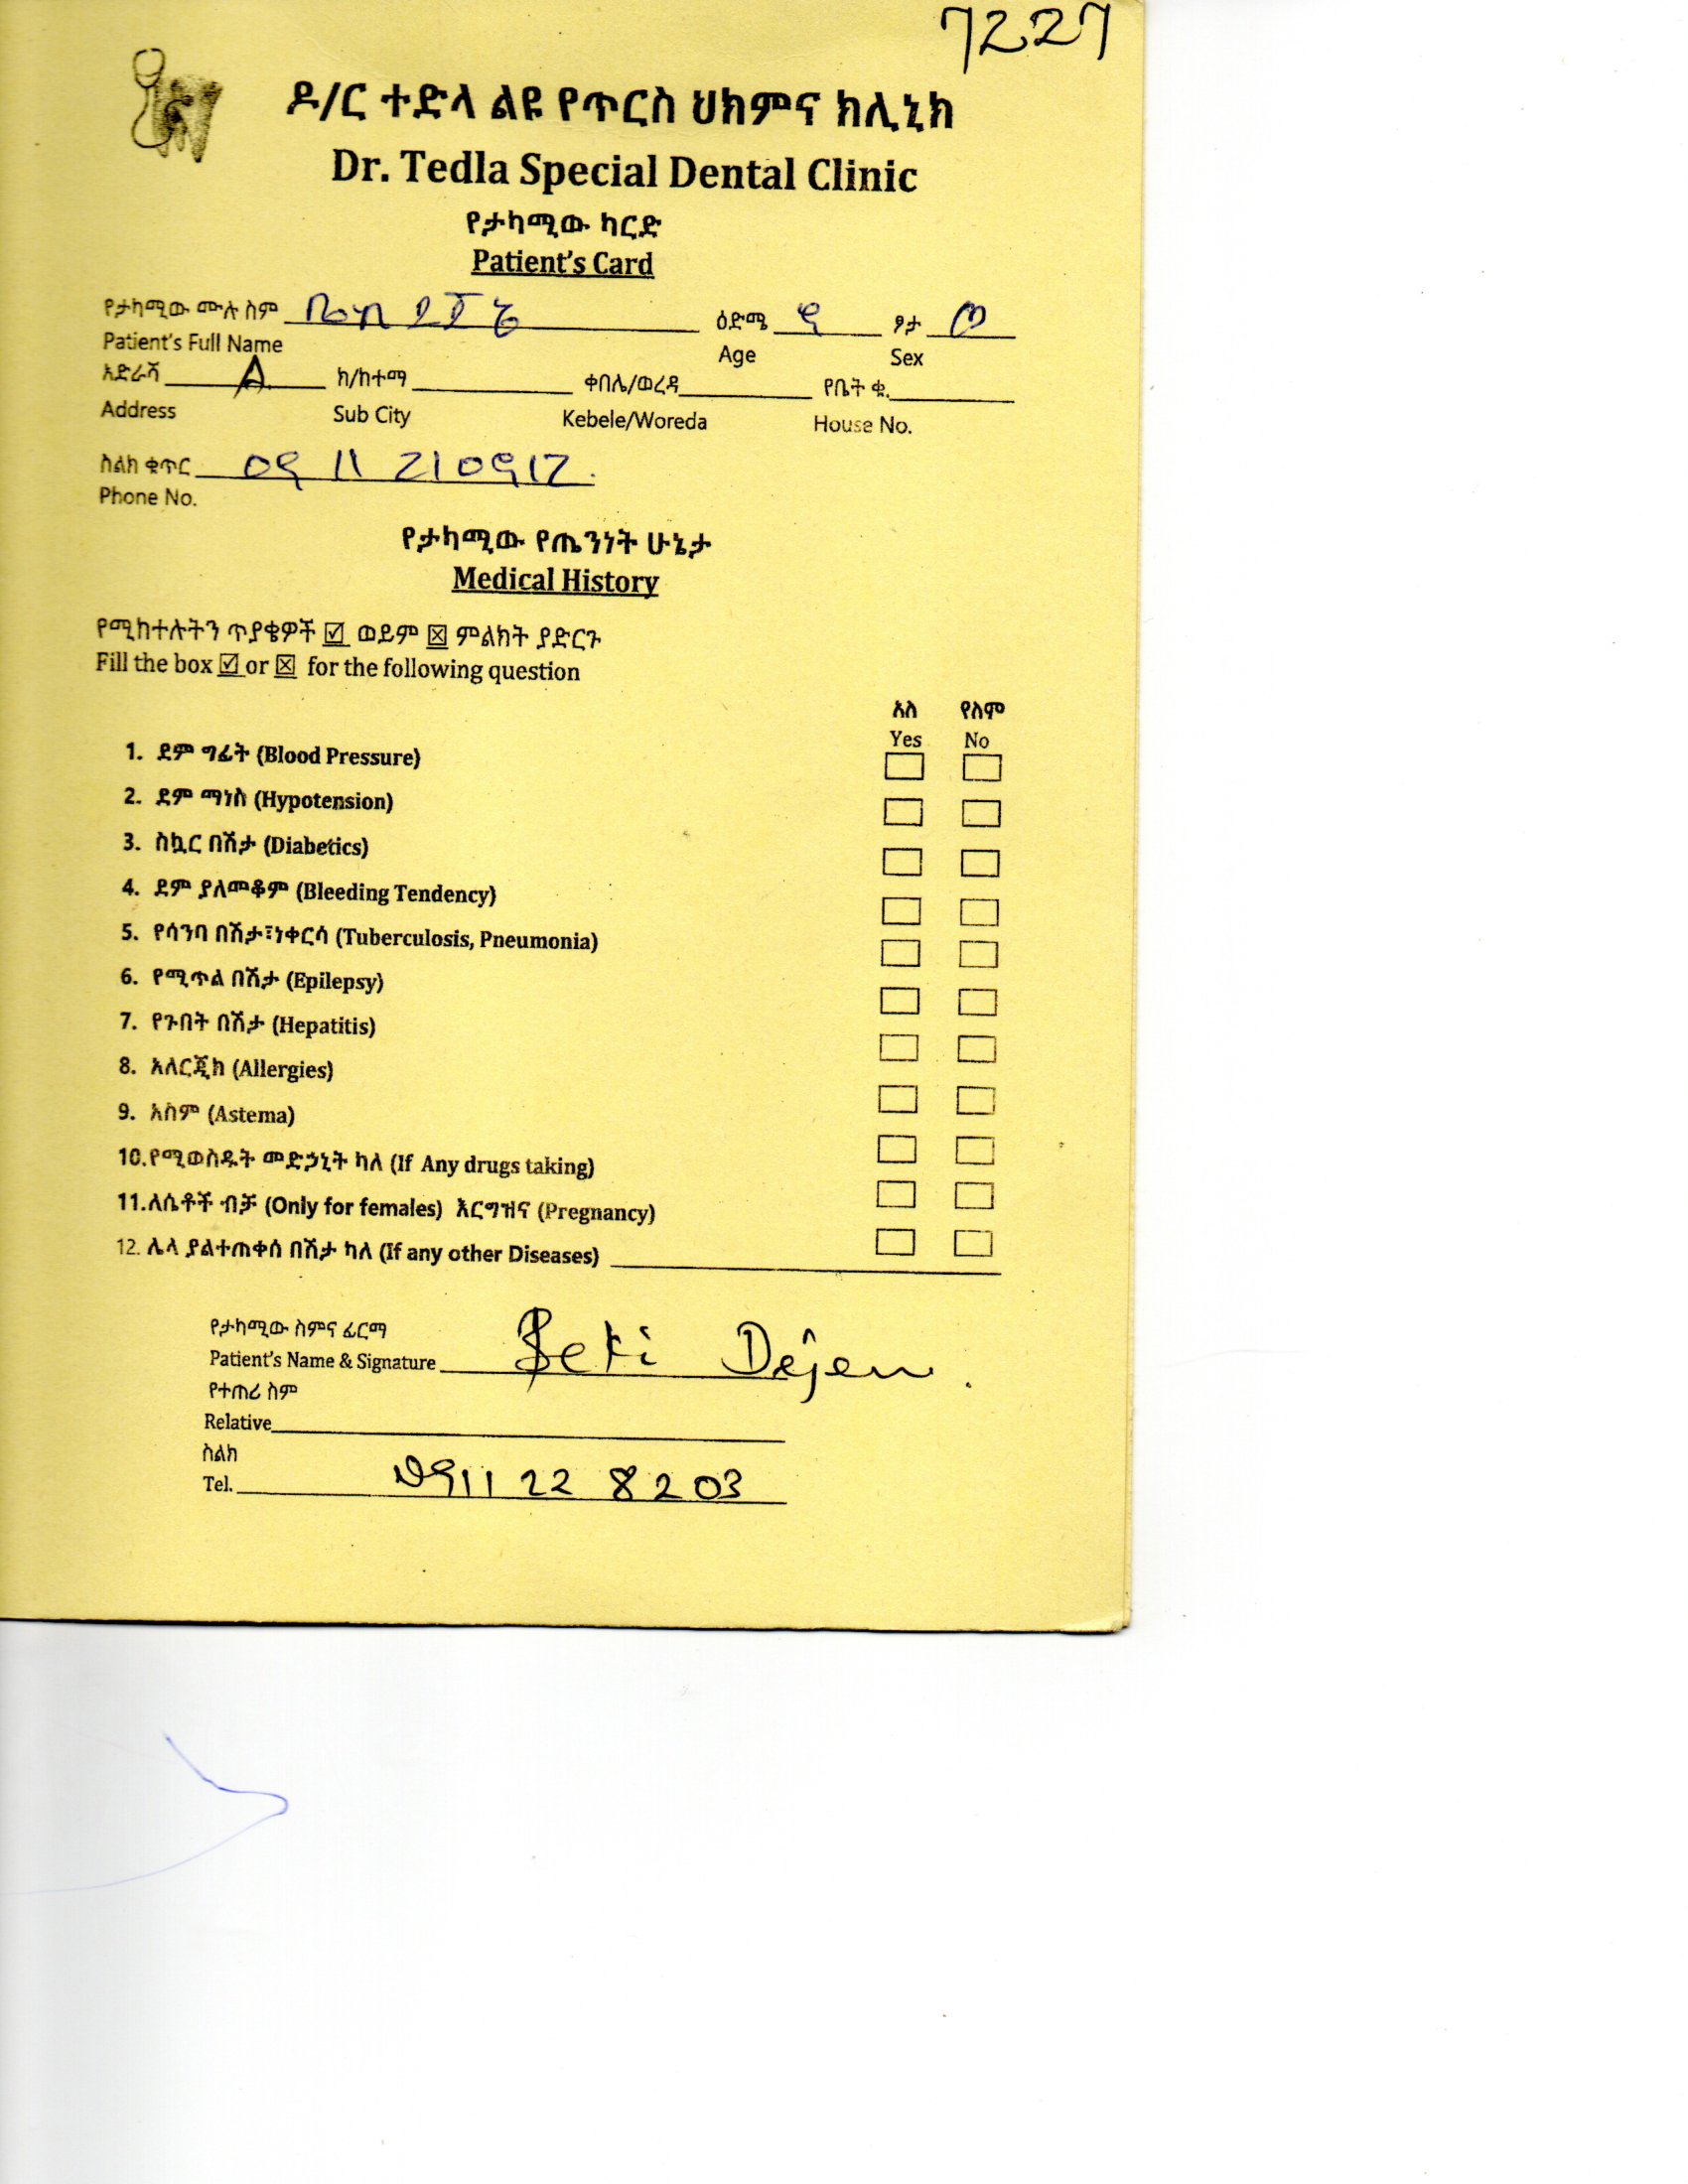 7227
ዶ/ር ተድላ ልዩ የጥርስ ህክምና ክሊኒክ
Dr. Tedla Special Dental Clinic
የታካሚው ካርድ
Patient's Card
የታካሚው ሙሉ ስም ዕድሜ ፆታ
Patient's Full Name Age Sex
አድራሻ A ክ/ከተማ ቀበሌ/ወረዳ የቤት ቁ.
Address Sub City Kebele/Woreda House No.
ስልክ ቁጥር 09 11 210912
Phone No.
የታካሚው የጤንነት ሁኔታ
Medical History
የሚከተሉትን ጥያቄዎች ☑ ወይም ☒ ምልክት ያድርጉ
Fill the box ☑ or ☒ for the following question
አለ የለም
Yes No
1. ደም ግፊት (Blood Pressure)
2. ደም ማነስ (Hypotension)
3. ስኳር በሽታ (Diabetics)
4. ደም ያለመቆም (Bleeding Tendency)
5. የሳንባ በሽታ፣ነቀርሳ (Tuberculosis, Pneumonia)
6. የሚጥል በሽታ (Epilepsy)
7. የጉበት በሽታ (Hepatitis)
8. አለርጂክ (Allergies)
9. አስም (Astema)
10.የሚወስዱት መድኃኒት ካለ (If Any drugs taking)
11.ለሴቶች ብቻ (Only for females) እርግዝና (Pregnancy)
12. ሌላ ያልተጠቀሰ በሽታ ካለ (If any other Diseases)
የታካሚው ስምና ፊርማ
Patient's Name & Signature Beti Dejen
የተጠሪ ስም
Relative
ስልክ
Tel. 0911 22 8203